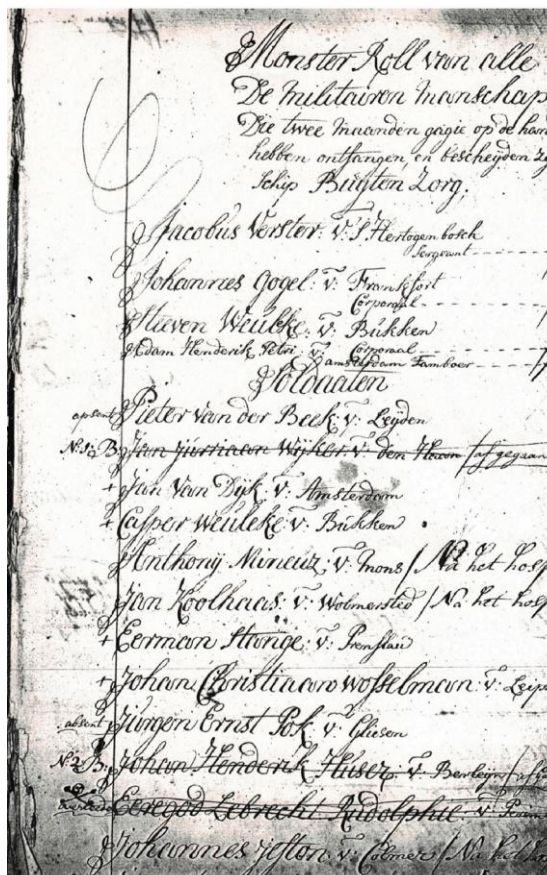 Monster Roll van alle
De militairen manschap
Die twee maanden gagie op de han
hebben ontfangen, en bescheyden zy
Schip Buyten Zorg.
Jacobus Verster v: S Hertogenbosch
Sergeant
Johannes Gogel: v: Frankfort
Corporaal
Stieven Weuleke v: Bukken
Corporaal
Adam Henderik Petri v: amsterdam Tamboer
Soldaaten
absent Pieter van der Beek: v: Leyden
N:1: B Jan Jurriaan Wyker: v: den Haan / afgegaan
+ Jan Van Dyk: v: Amsterdam
+ Casper Weuleke v: Bukken
Anthony Mineur: v: mons / Na het hosp
Jan Koolhaas: v: Wolmersted / Na het hosp
+ Eerman Stange: v: Prenslau
+ Johan Christiaan Wosselman: v: Leip
absent Jurgen Ernst Pok v: Gliesen
N:2: B Johan Henderik Huser: v: Berleyn /
Eeregod Lebrecht Rudolphie: v:
Johannes Jeston v: Colmer / Na het